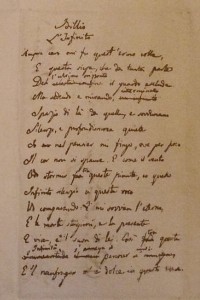 Idillio
L'Infinito
Sempre caro mi fu quest'ermo colle,
E questa siepe, che da tanta parte
De l'ultimo orizzonte
il guardo esclude.
Ma sedendo e mirando,
Spazio di là da quella, e sovrumani
Silenzi, e profondissima quiete
Io nel pensier mi fingo, ove per poco
Il cor non si spaura. E come il vento
Odo stormir fra queste piante, io quello
Infinito silenzio a questa voce
Vo comparando: E mi sovvien l'eterno,
E le morte stagioni, e la presente
E viva, e 'l suon di lei. Così fra questa
pensier
E 'l naufragar m'è dolce in questo mare